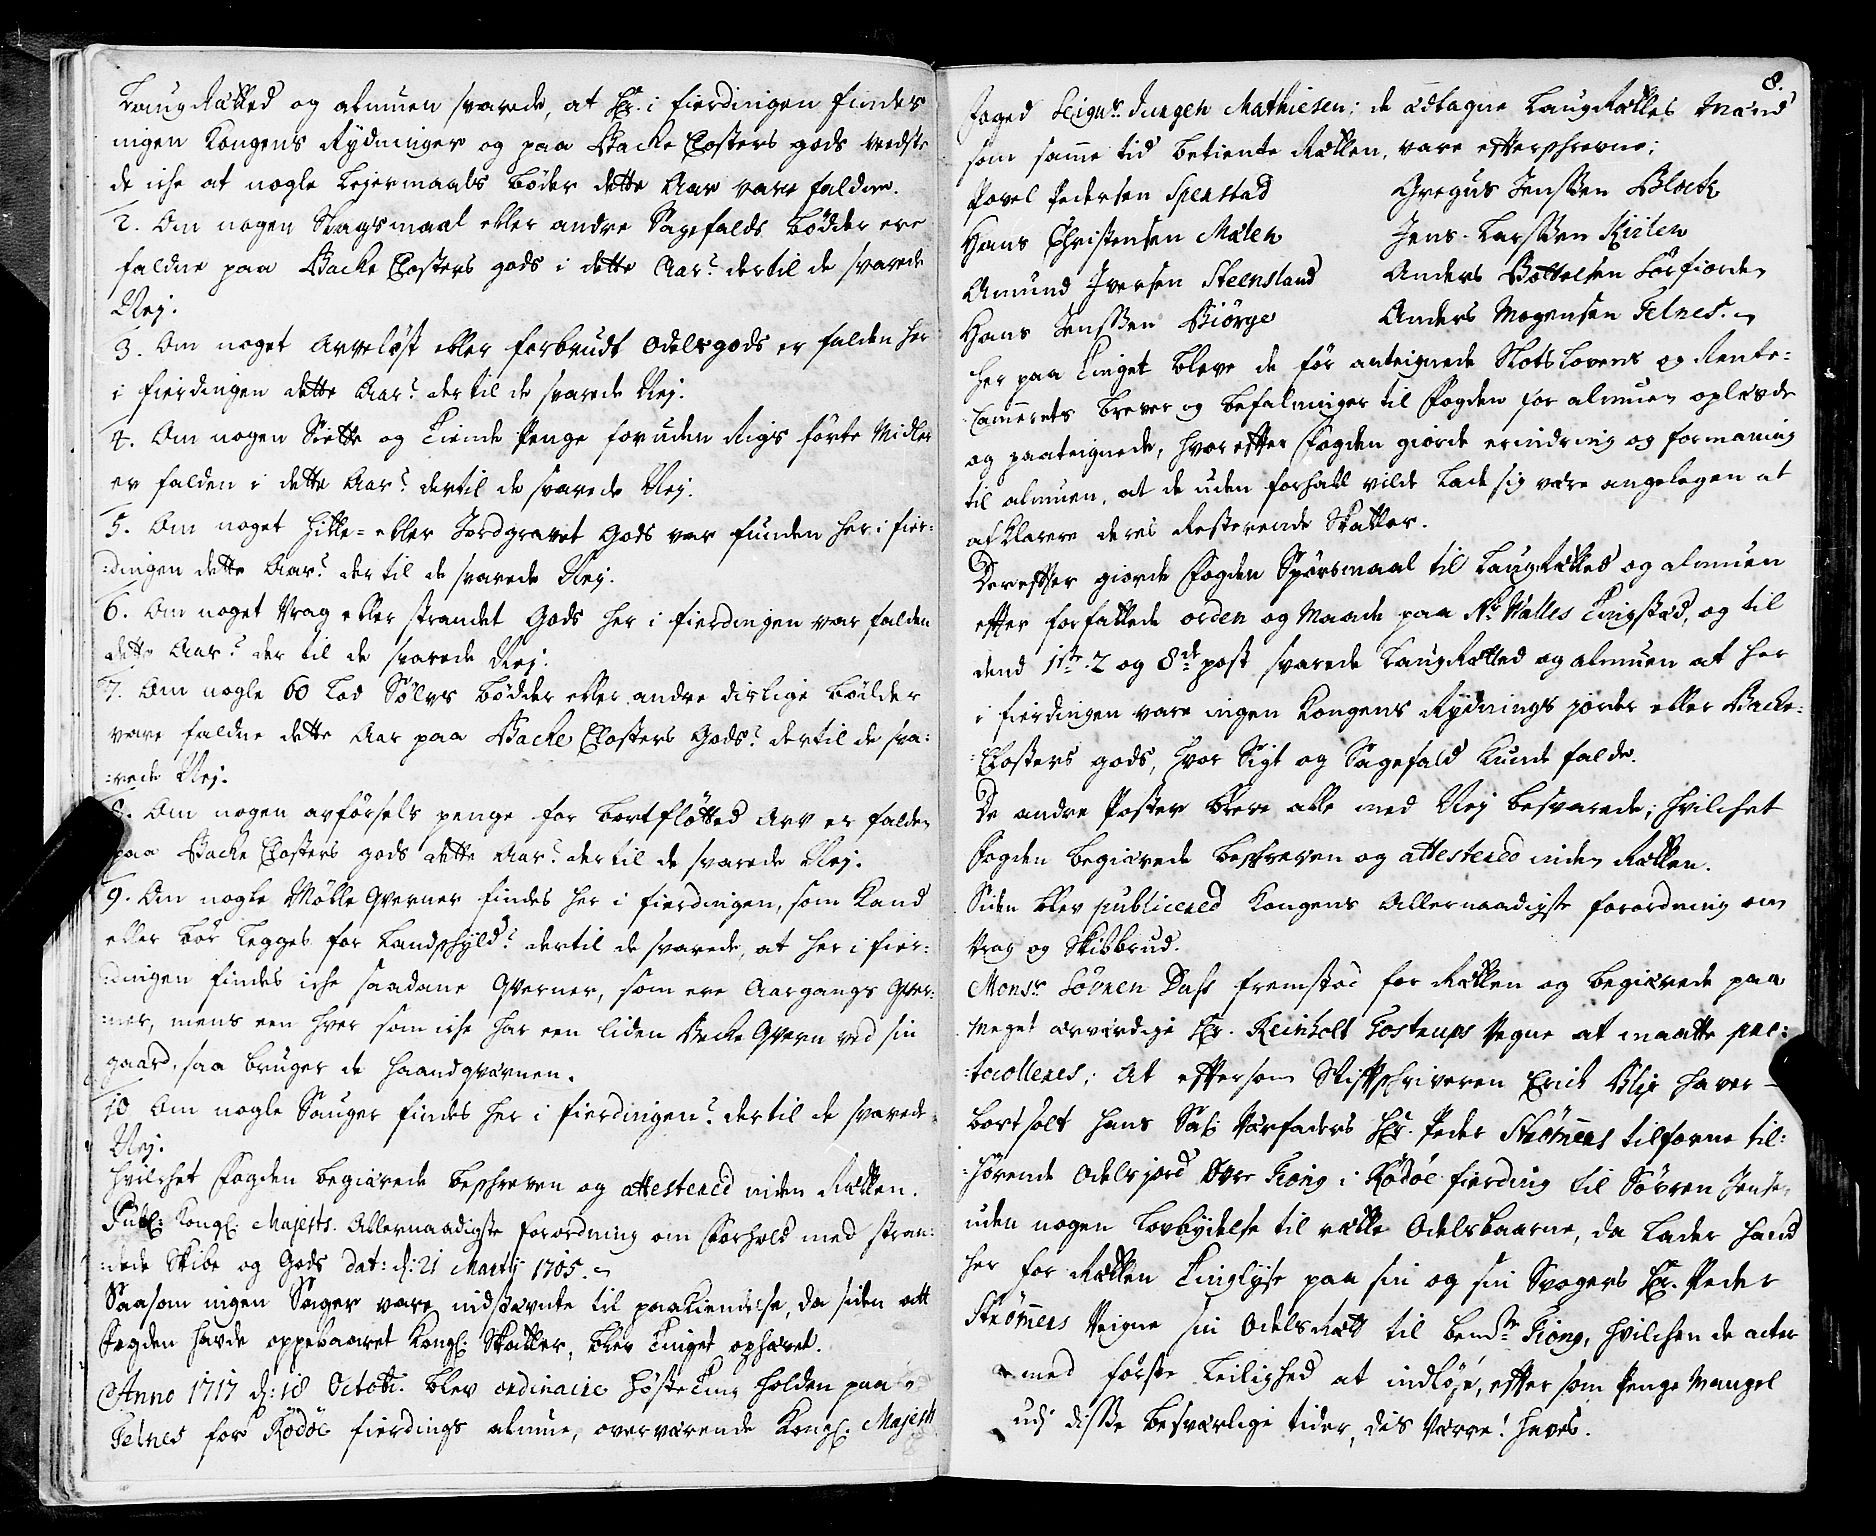 LaugRætted og almuen svarede, at hr. i fierdingen findes
ingen Kongens Rydninger og paa Backe Closters gods vidste
de iche at nogle Lejermaals bøder dette Aar vare faldne.
2. Om nogen Slagsmaal eller andre Sagefalds bødder ere
faldne paa Backe Closters gods i dette Aar? dertil de svarede
Nej.
3. Om noget Arveløst eller forbrudt Odelsgods er falden her
i fierdingen dette Aar? der til de svarede Nej.
4. Om nogen Siette og Tiende Penge for uden Rigs førte Midler
er falden i dette Aar? dertil de svarede Nej.
5. Om noget hitte- eller Jordgravet Gods var funden her i fier:
:dingen dette Aar? der til de svarede Nej.
6. Om noget Vrag eller strandet Gods her i fierdingen var falden
dette Aar? der til de svarede Nej.
7. Om nogle 60 Lod Sølvs bødder eller andre dislige bøder
vare faldne dette Aar paa Backe Closters Gods? dertil de sva:
:rede Nej.
8. Om nogen avførsels penge for bortfløtted Arv er falden
paa Backe Closters gods dette Aar? dertil de svarede Nej.
9. Om nogle Mølle Qverner findes her i fierdingen, som Kand
eller bør Legges for Landschyld? dertil de svarede, at her i fier:
:dingen findes iche saadane Qverner, som ere Aargangs Qver:
:ner, mens een hver som iche har een liden Becke Qvern ved sin
gaard, saa bruger de haandqvernen.
10 Om nogle Sauger findes her i fierdingen? dertil de svarede
Nej.
hvilchet Fogden begiærede beschreven og attestered inden Rætten.
Publ: Kongl: Majests. Allernaadigste forordning om Forhold med stran:
:dede Skibe og Gods dat: d: 21 Martij 1705.
Saasom ingen Sager vare indstævnte til paakiendelse, da siden att
Fogden havde oppebaaret Kongl: Skatter, blev Tinget ophævet.
Anno 1717 d: 18 Octobr. blev ordinairie HøsteTing holden paa
Telnes for Rødøe fierdings almue, overværende Kongl: Majests
8.
Foged Seigr. Jurgen Mathiesen; de udtagne LaugRættes Mænd
som samme tid betiente Rætten, vare efterschrevne;
Povel Pedersen Spenstad Gregus Jenssen Block
Hans Christensen Mælen Jens Larssen Kiilen
Amund Iversen Steensland Anders Bottelsen Sørfiorden
Hans Jenssen Biørge Anders Mogensen Telnes.
her paa Tinget bleve de før anteignede SlotsLovens og Rente-
Camerets brever og befalninger til Fogden for almuen oplæsde
og paateignede, hvorefter Fogden giorde erindring og formaning
til almuen, at de uden forhall vilde Lade sig være angelegen at
afklarere deres Resterende Skatter.
Derefter giorde Fogden Spørsmaal til LaugRætted og almuen
efter forfattede orden og Maade paa Nr. Walles Tingsted, og til
dend 1ste 2 og 8de post svarede LaugRætted og almuen at her
i fierdingen vare ingen Kongens Rydnings jorder eller Backe-
Closters gods, hvor Sigt og Sagefald Kunde falde.
De andre Poster bleve alle med Nej besvarede; hvilchet
Fogden begiærede beskreven og attestered inden Rætten.
Siden blev publicered Kongens Allernaadigste forordning om
Vrag og Skibbrud.
Monsr. Sörren Dass fremstod for Rætten og begiærede paa
meget ærværdige Hr. Reinholt Tostrups Vegne at maatte pro:
:tocolleres; At efter som Skifschriveren Erick Blix haver
bortsolt hans Sal: Værfaders Hr. Peder Strømers tilforne til:
:hørende Odels jord Øvre Tiong i Rødøe fierding til Sörren Jensen
uden nogen lovbydelse til rætte Odelsbaarne, da Lader hand
her for Rætten Tinglyse paa sin og sin Svogers Hr. Peder
Strømers Veigne sin Odels Ræt til bemte. Tiong, hvilchen de acter
med første Leilighed at indløse, efter som Penge Mangel
udi disse besværlige tider, dis værre! haves.